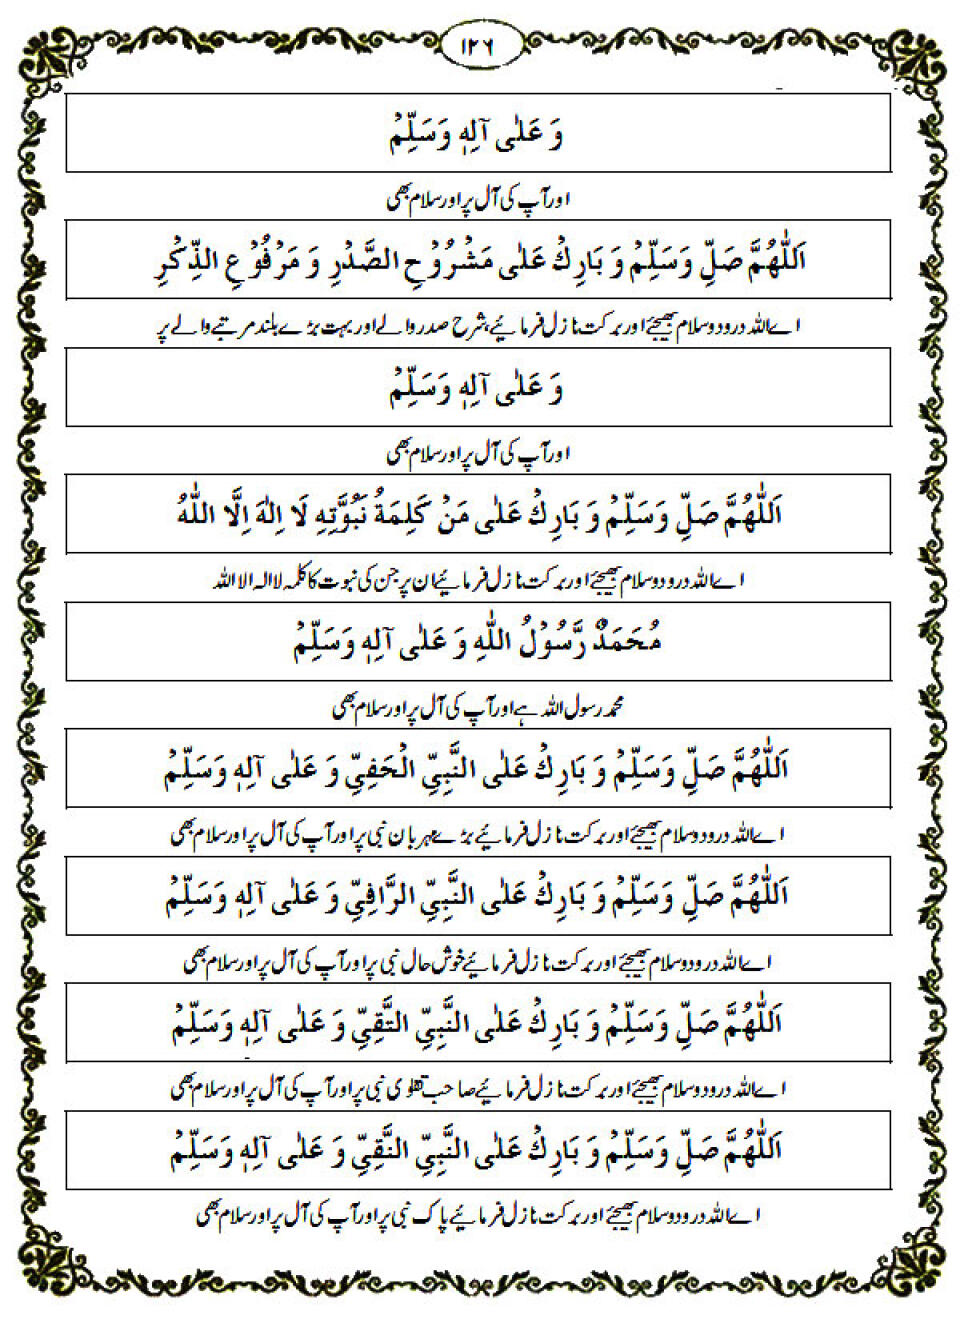 ۱۲۶
وَ عَلٰی آلِہٖ وَسَلِّمْ
اور آپ کی آل پر اور سلام بھی
اَللّٰهُمَّ صَلِّ وَسَلِّمْ وَ بَارِكْ عَلٰی مَشْرُوْحِ الصَّدْرِ وَ مَرْفُوْعِ الذِّكْرِ
اے اللہ درود و سلام بھیجئے اور برکت نازل فرمائیے شرح صدر والے اور بہت بڑے بلند مرتبے والے پر
وَ عَلٰی آلِہٖ وَسَلِّمْ
اور آپ کی آل پر اور سلام بھی
اَللّٰهُمَّ صَلِّ وَسَلِّمْ وَ بَارِكْ عَلٰی مَنْ كَلِمَةُ نَبُوَّتِهٖ لَا اِلٰهَ اِلَّا اللّٰهُ
اے اللہ درود و سلام بھیجئے اور برکت نازل فرمائیے ان پر جن کی نبوت کا کلمہ لا الہ الا اللہ
مُحَمَدٌ رَّسُوْلُ اللّٰهِ وَ عَلٰی آلِہٖ وَسَلِّمْ
محمد رسول اللہ ہے اور آپ کی آل پر اور سلام بھی
اَللّٰهُمَّ صَلِّ وَسَلِّمْ وَ بَارِكْ عَلٰی النَّبِيِّ الْحَفِيِّ وَ عَلٰی آلِہٖ وَسَلِّمْ
اے اللہ درود و سلام بھیجئے اور برکت نازل فرمائیے بڑے مہربان نبی پر اور آپ کی آل پر اور سلام بھی
اَللّٰهُمَّ صَلِّ وَسَلِّمْ وَ بَارِكْ عَلٰی النَّبِيِّ الرَّافِيِّ وَ عَلٰی آلِہٖ وَسَلِّمْ
اے اللہ درود و سلام بھیجئے اور برکت نازل فرمائیے خوش حال نبی پر اور آپ کی آل پر اور سلام بھی
اَللّٰهُمَّ صَلِّ وَسَلِّمْ وَ بَارِكْ عَلٰی النَّبِيِّ التَّقِيِّ وَ عَلٰی آلِہٖ وَسَلِّمْ
اے اللہ درود و سلام بھیجئے اور برکت نازل فرمائیے صاحب تقویٰ نبی پر اور آپ کی آل پر اور سلام بھی
اَللّٰهُمَّ صَلِّ وَسَلِّمْ وَ بَارِكْ عَلٰی النَّبِيِّ النَّقِيِّ وَ عَلٰی آلِہٖ وَسَلِّمْ
اے اللہ درود و سلام بھیجئے اور برکت نازل فرمائیے پاک نبی پر اور آپ کی آل پر اور سلام بھی